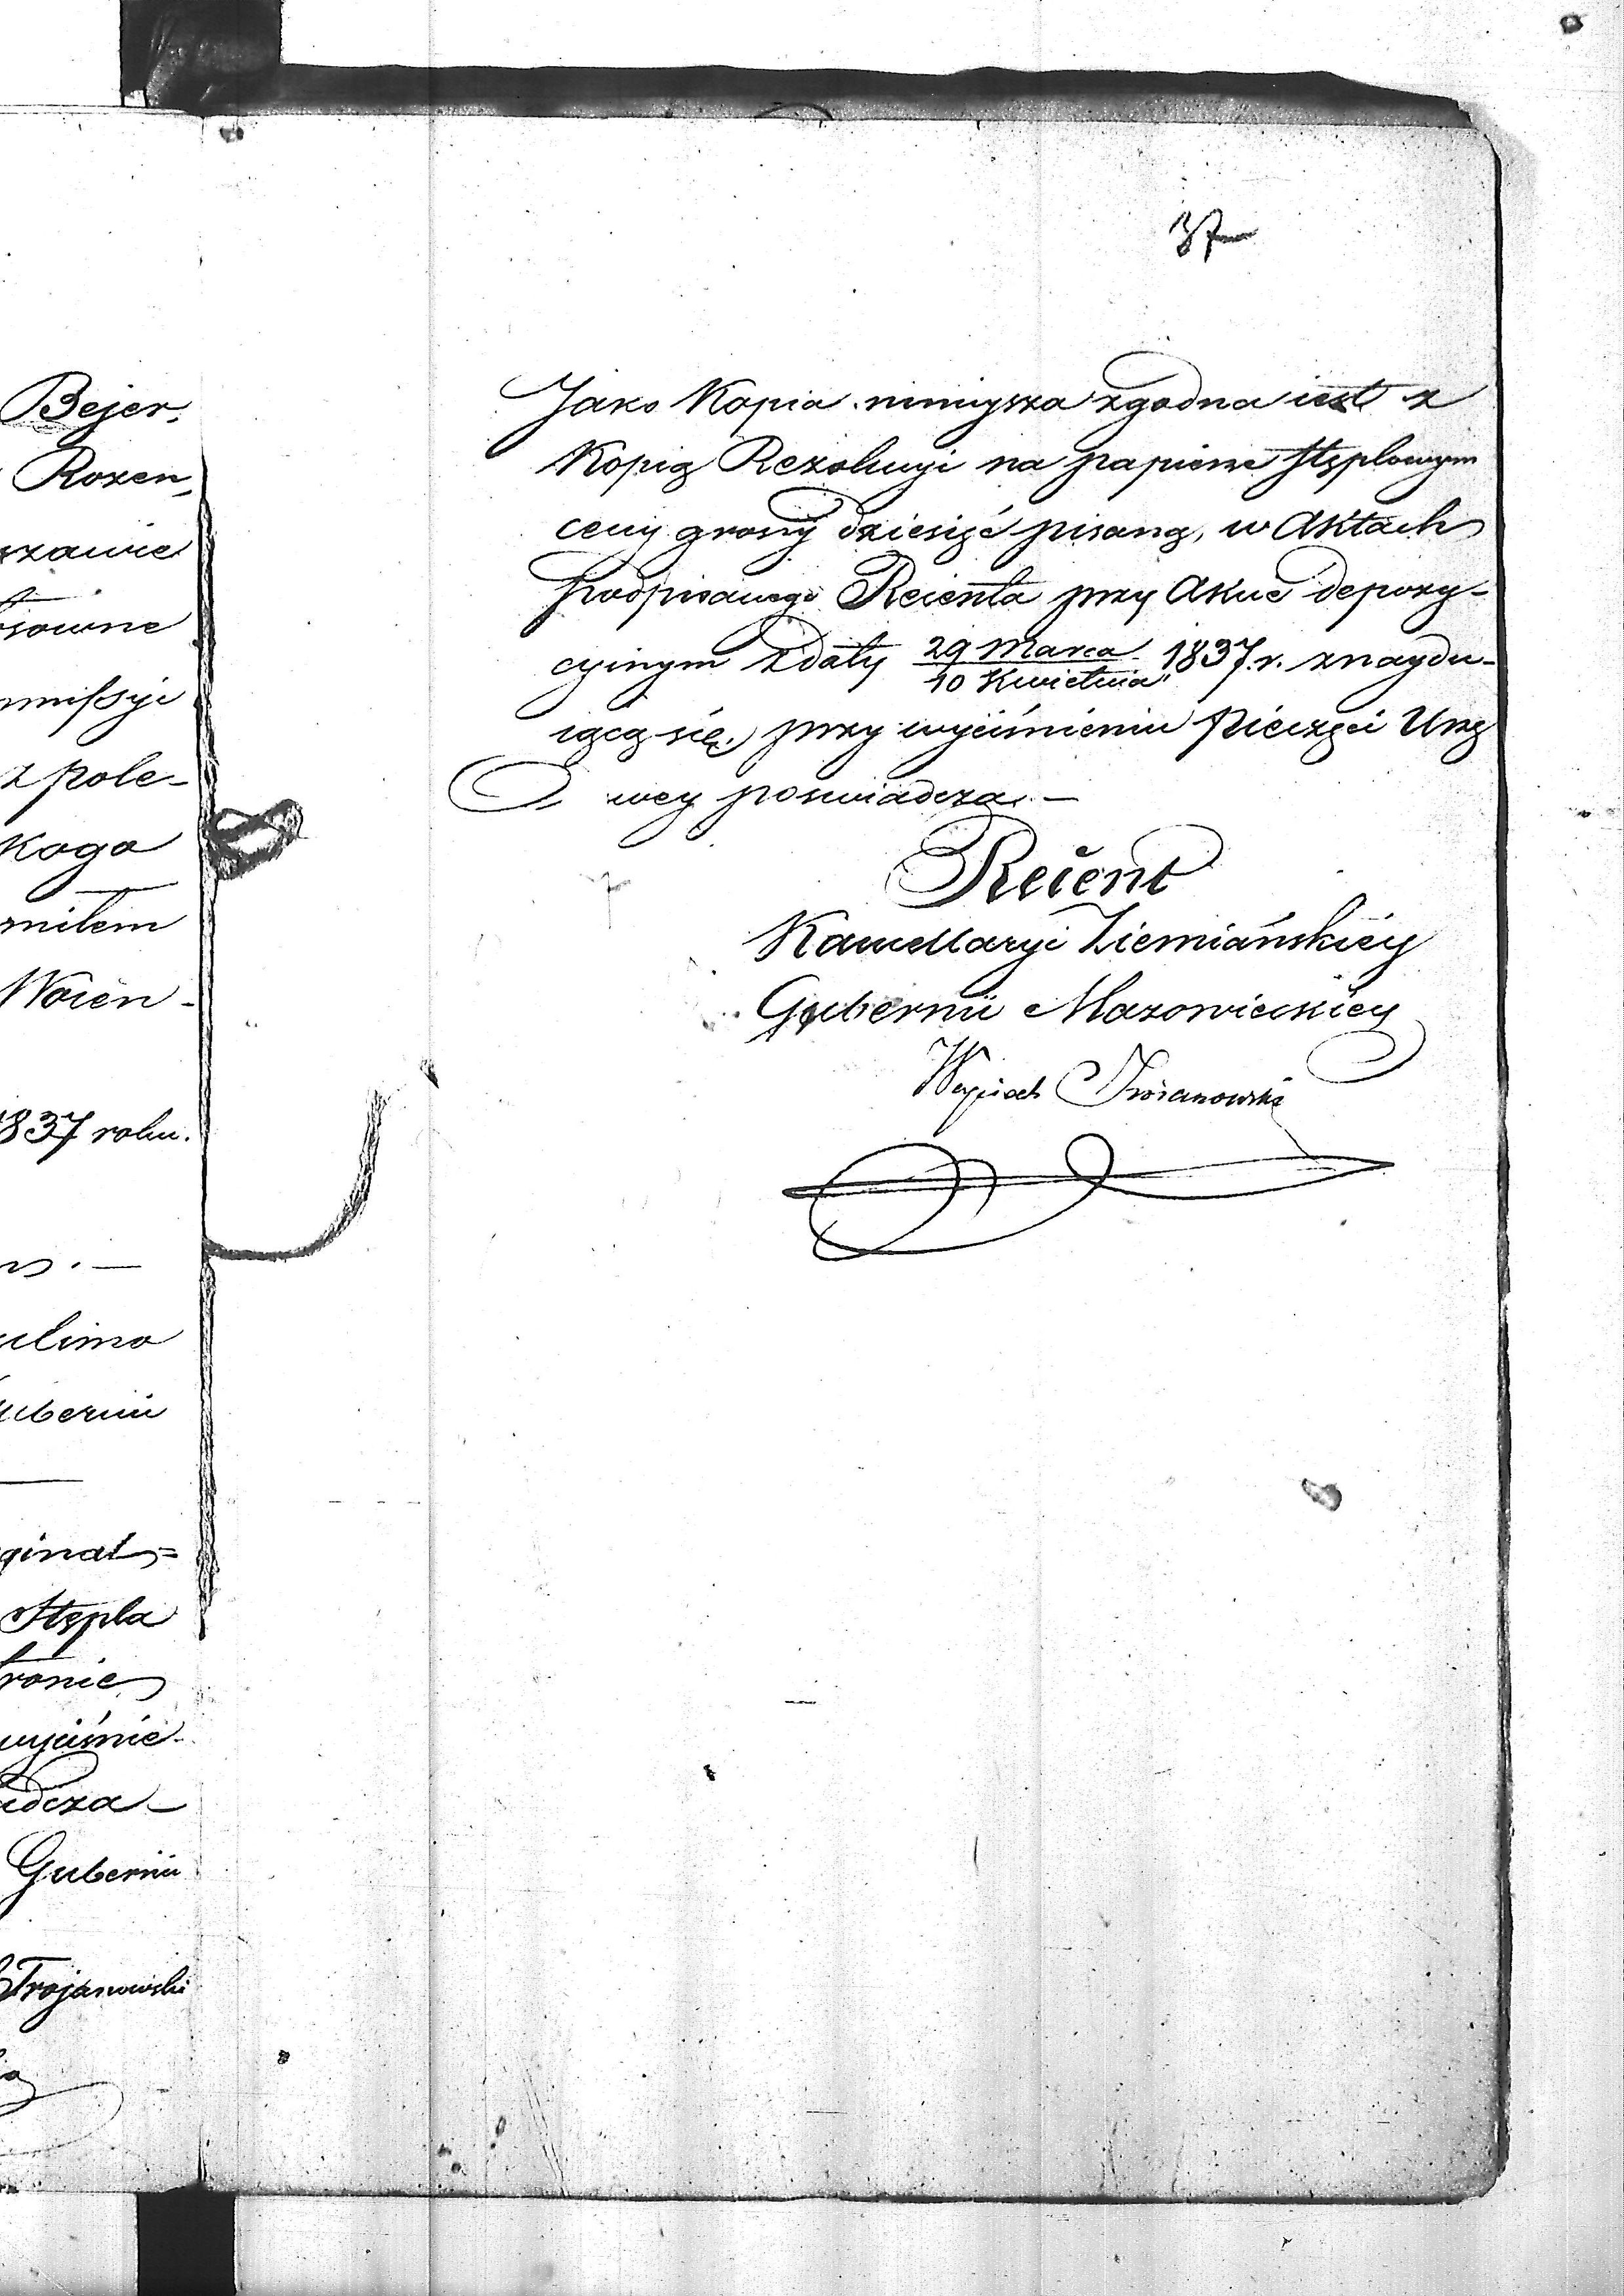 37
Bejer,
Rozen,
szawie
sowne
mmissyi
z pole-
kogo
milem
Woien-
1837 roku.
ulimo
Gubernii
ginal=
Stępla
ronie
wyciśnie-
adcza
Gubernii
Trojanowski
Jako Kopia ninieysza zgodna iest z
Kopią Rezolucyi na papierze Stęplowym
ceny groszy dziesięć pisaną, w Aktach
Podpisanego Reienta przy Akcie depozy-
cyinym z daty 29 Marca / 10 Kwietnia 1837. r. znaydu-
iącą się, przy wyciśnieniu Pieczęci Urzę
dowey poswiadcza.—
Reient
Kancellaryi Ziemiańskiéy
Gubernii Mazowieckiey
Woyciech Troianowski